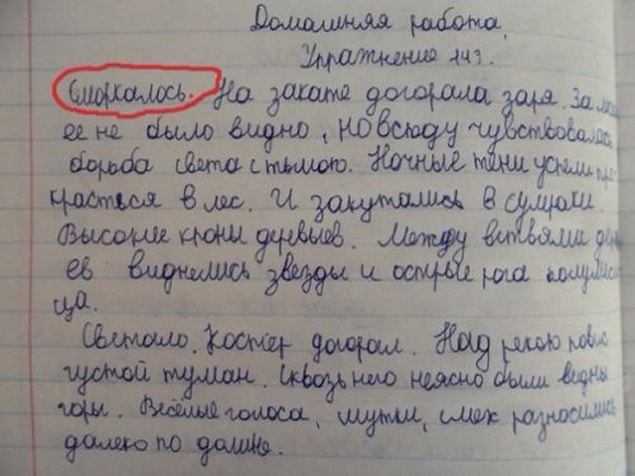 Домашняя работа.
Упражнение 143.
Смеркалось. На закате догорала заря. За
ее не было видно, но всюду чувствовалась
борьба света с тьмою. Ночные тени успели про
красться в лес. И закутались в сумраки
Высокие кроны деревьев. Между ветвями дерев
ев виднелись звезды и острые рога полумеся
ца.
Светало. Костёр догорал. Над рекою повис
густой туман. Сквозь него неясно были видны
горы. Весёлые голоса, шутки, смех разносились
далеко по долине.